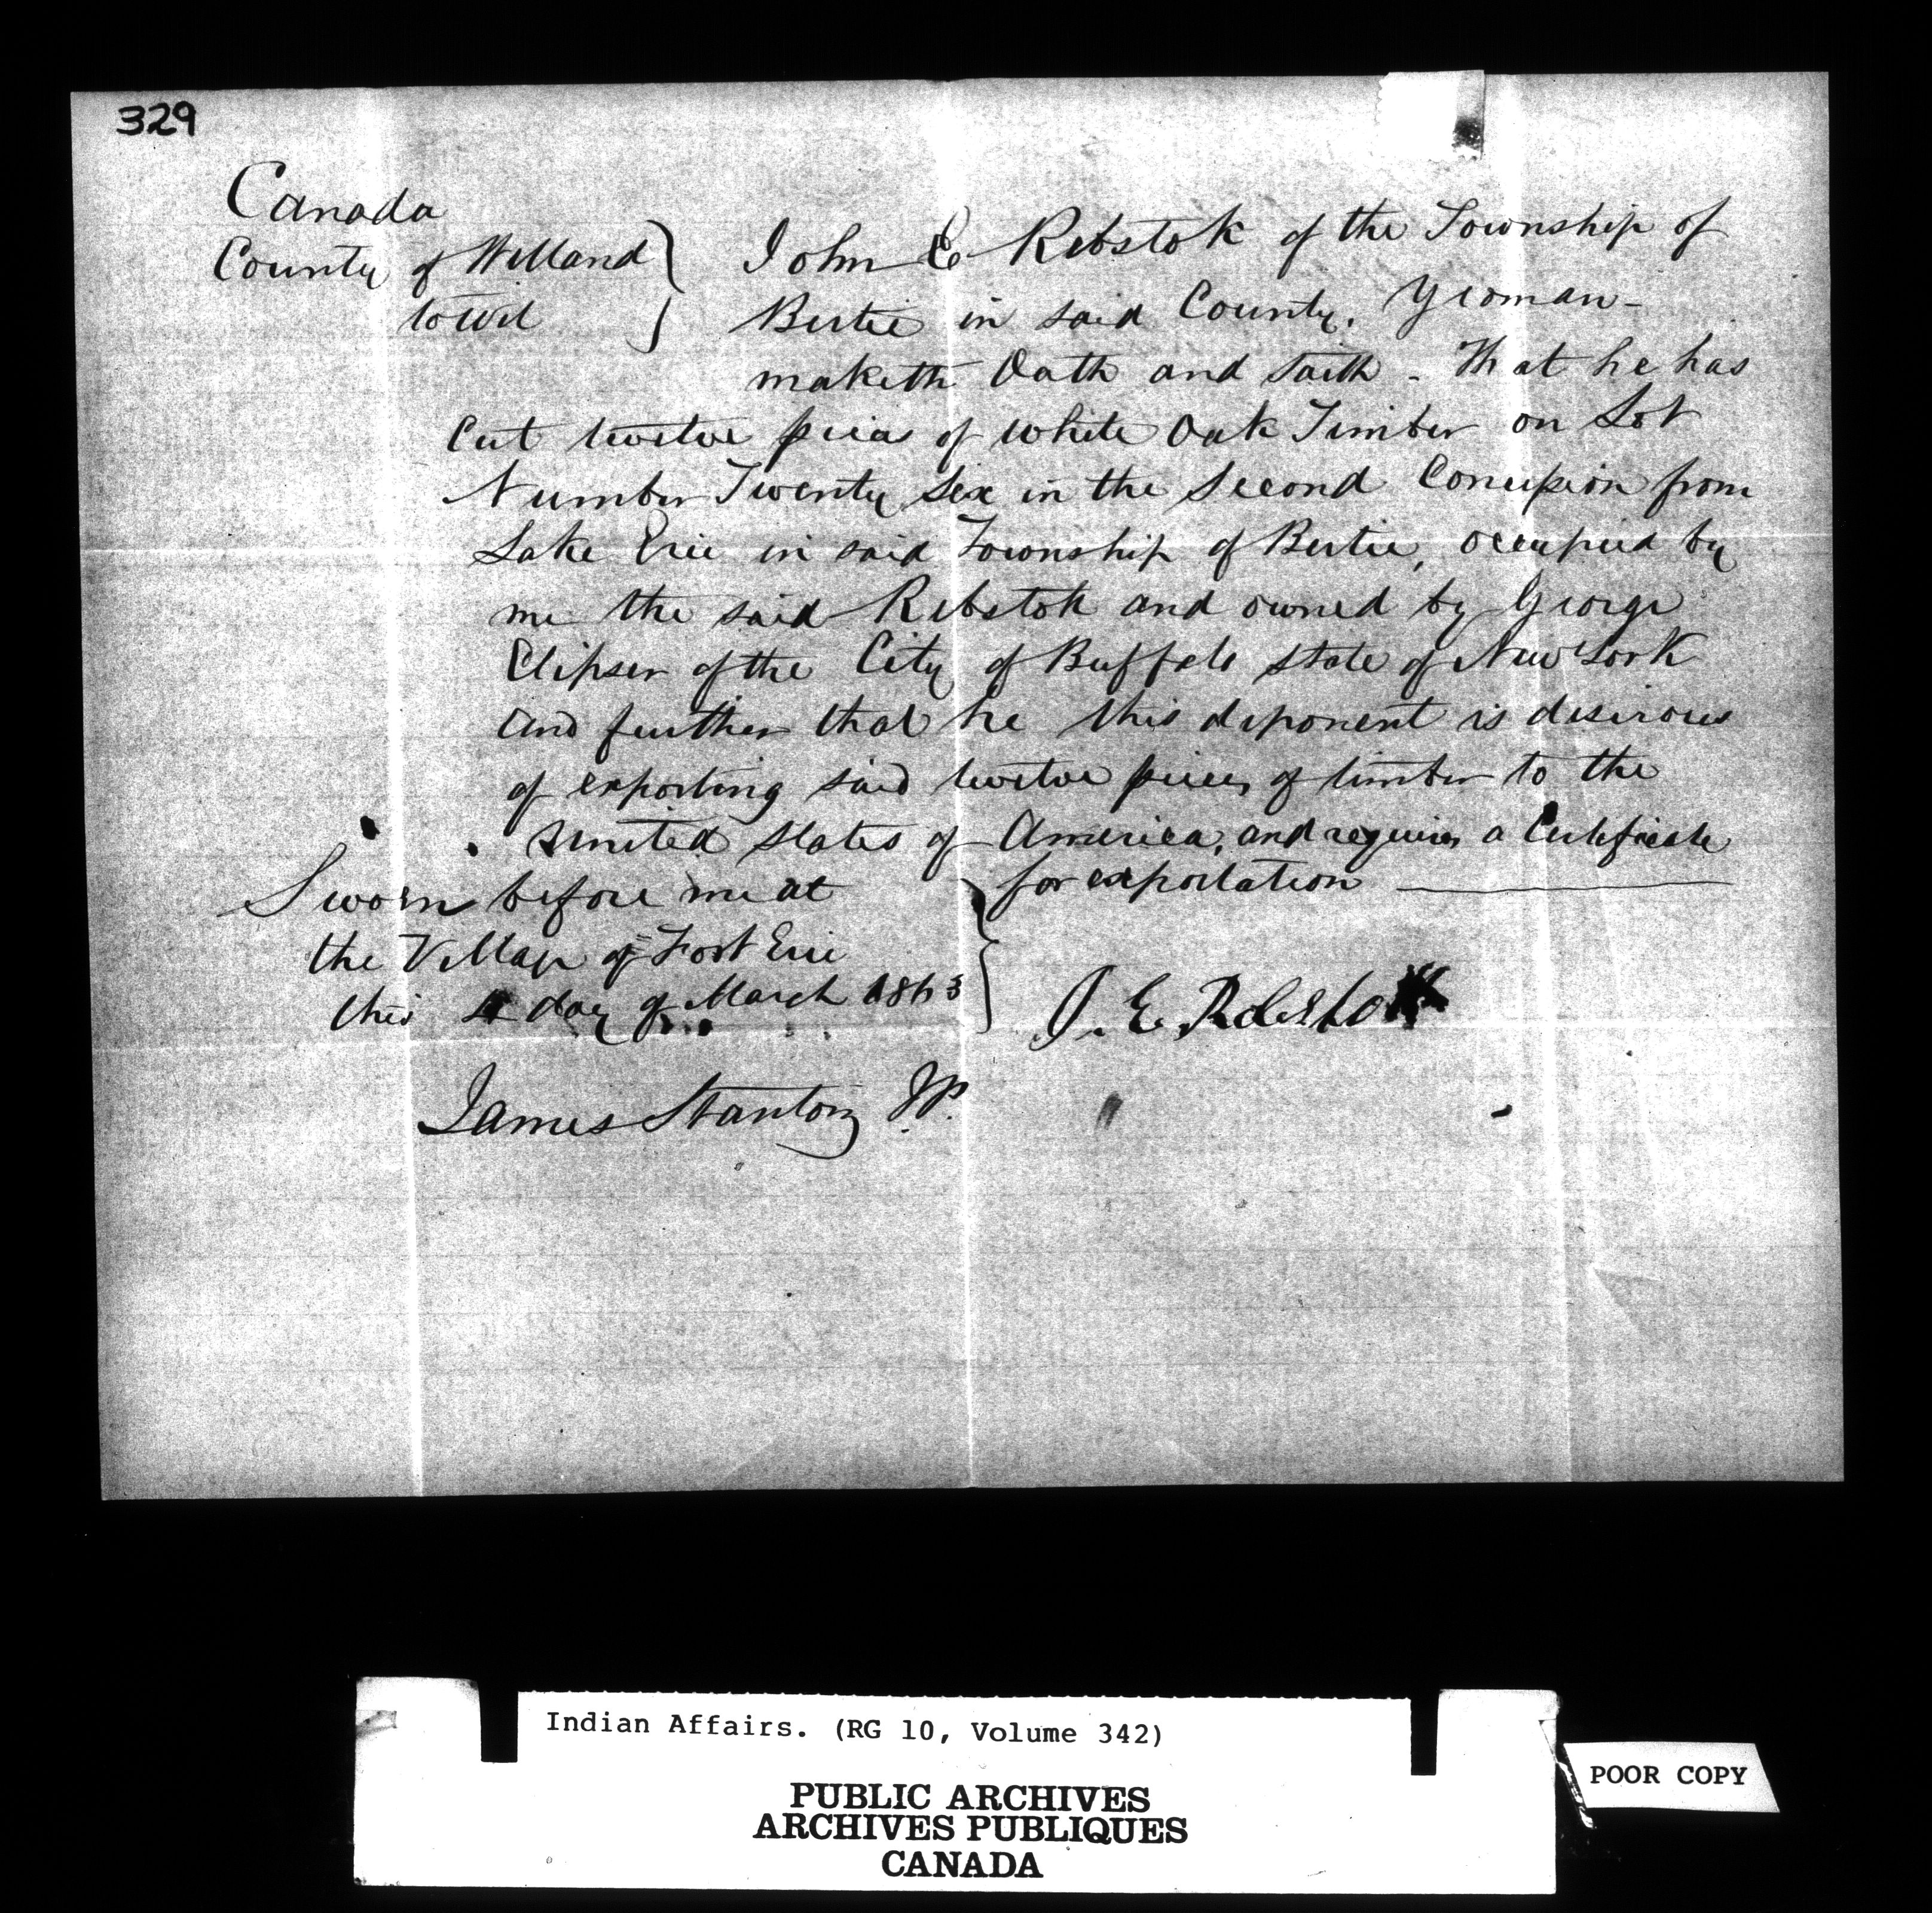 329
Canada
County of Welland
to wit
John E Rebstok of the Township of
Bertie in said County, Yeoman-
maketh Oath and saith - That he has
Cut twelve pieces of white Oak Timber on Lot
Number Twenty Six in the Second Concession from
Lake Erie in said Township of Bertie, occupied by
me the said Rebstok and owned by George
of the City of Buffalo state of New York
and further that he this deponent is desirous
of exporting said twelve pieces of timber to the
United States of America, and requires a Certificate
for exportation
Sworn before me at
the Village of Fort Erie
this 4 day of March 1863
J. E. Rebstok
James Stanton J.P.
Indian Affairs. (RG 10, Volume 342)
PUBLIC ARCHIVES
ARCHIVES PUBLIQUES
CANADA
POOR COPY